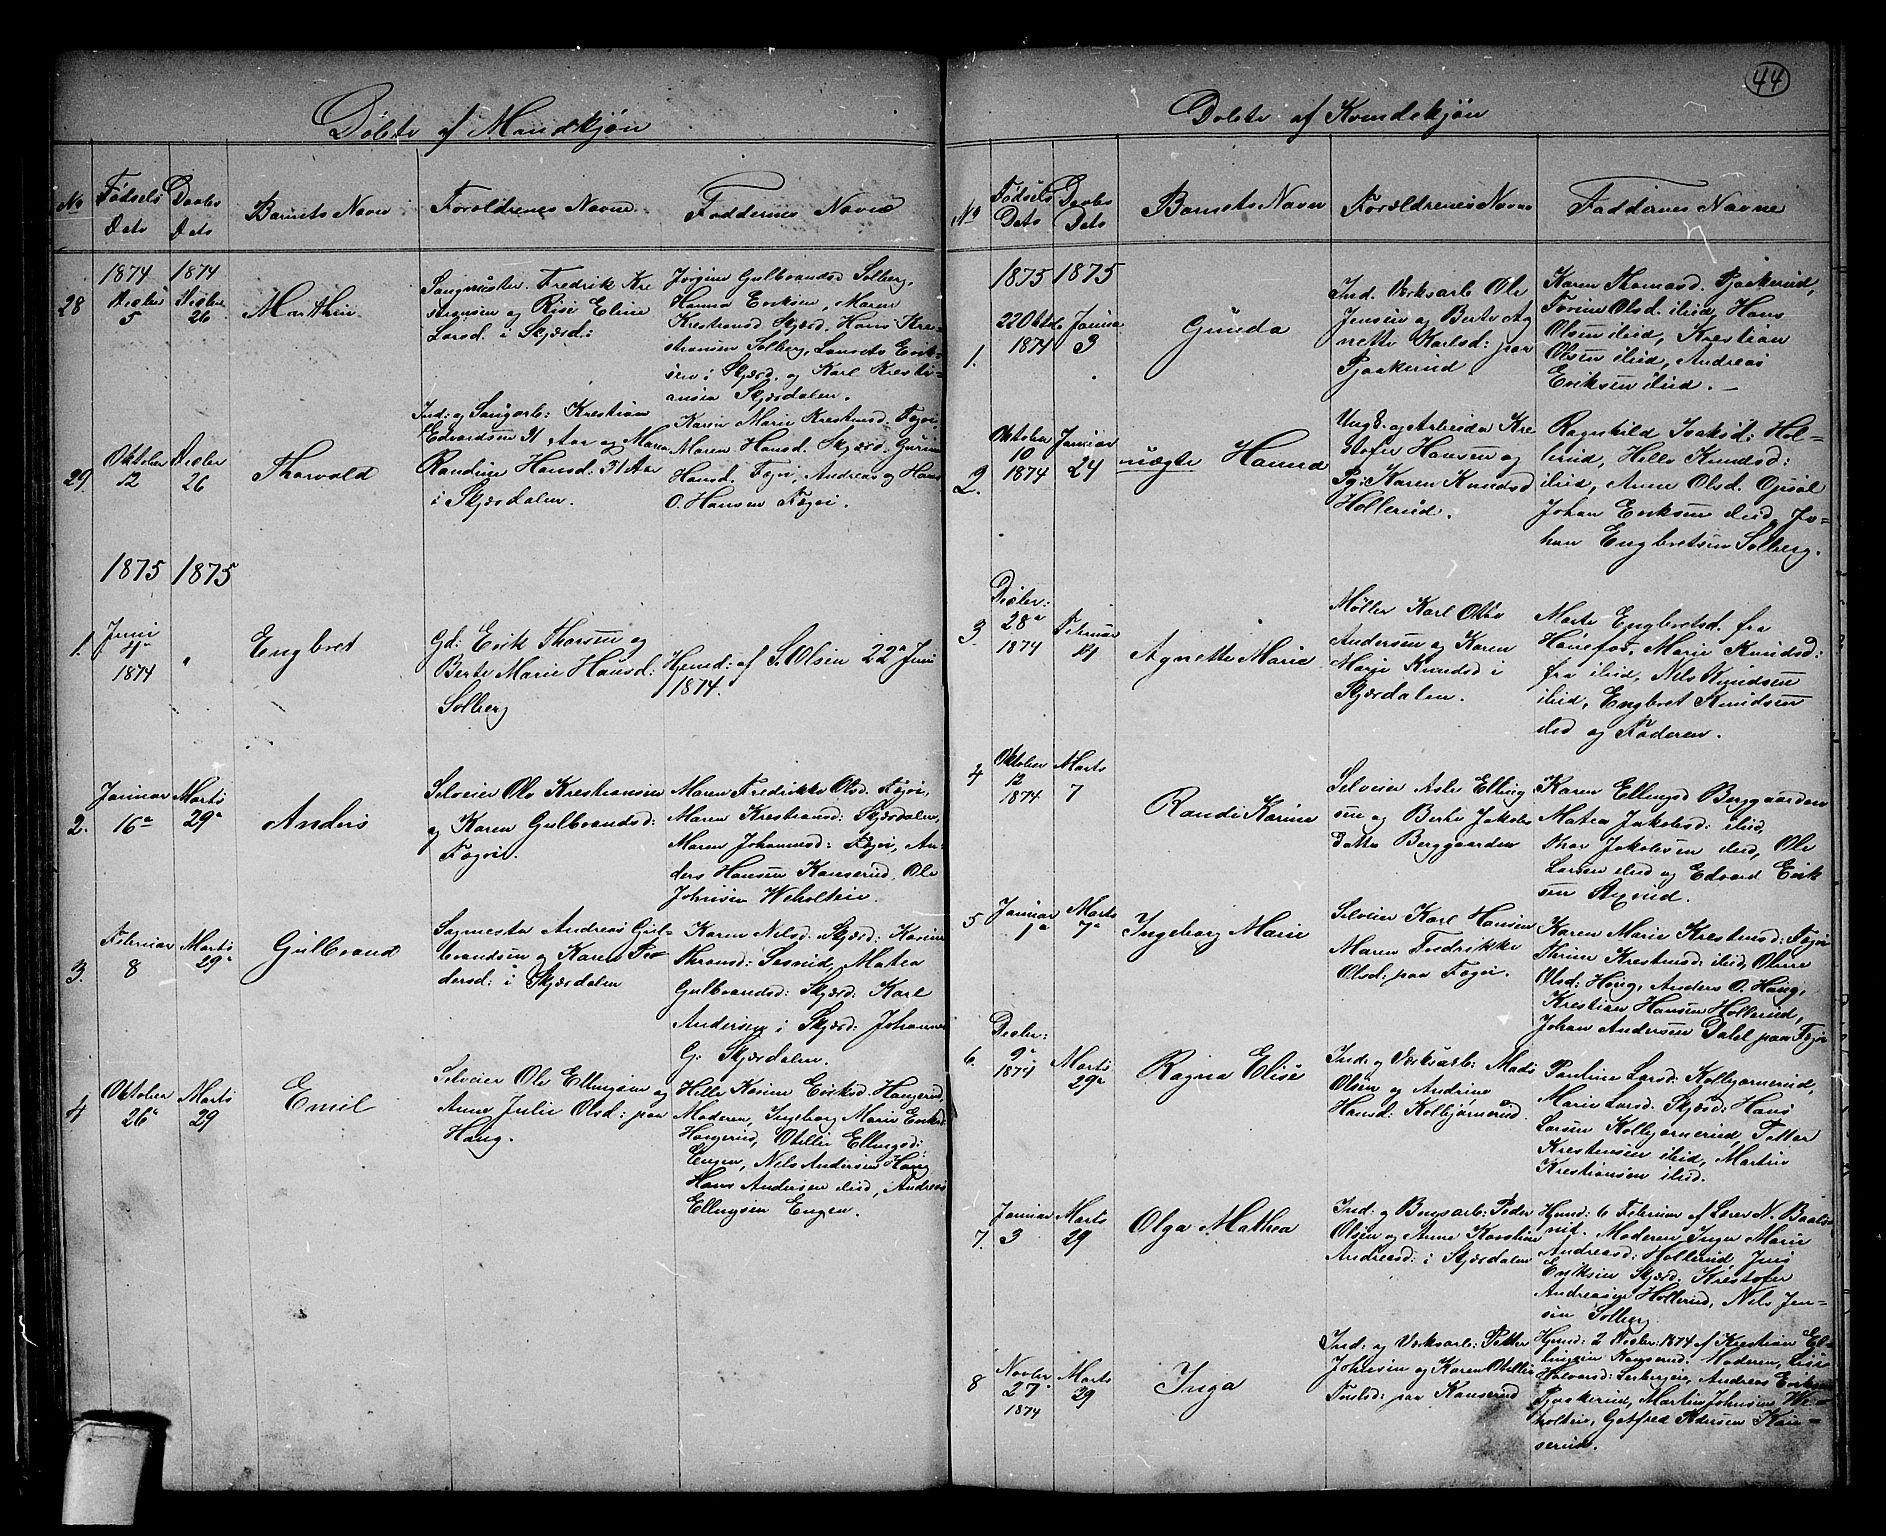 44
Døbte af Mandkjøn
No
Fødsels
Dato
Daabs
Dato
Barnets Navn
Forældrenes Navne
Faddernes Navne
1874
1874
28
Decbr
5
Decbr
26
Marthin
Sangmester Fredrik Kre
stiansen og Eline
Larsd. i Skjærd:
Jørgine Gulbrandsd Solberg,
Hanna Eriksen, Maren
Krestiansd Skjærd, Hans Kre-
stiansen Solberg, Laurets Erik-
sen i Skjærd. og Karl Kresti-
ansen Skjærdalen.
29.
Oktober
12
Decbr
26
Thorvald
Ind: og Saugarb: Krestian
Edvardsen 31 Aar og Maren
Randine Hansd. 31 Aar
i Skjærdalen.
Karen Marie Krestensd. Fægri
Maren Hansd. Skjærd. Gurine
Hansd. Fægri, Andreas og Hans
O. Hansen Fægri.
1875
1875
1.
Juni
4a
1874
"
Engbret
Gd: Erik Thorsen og
Berte Marie Hansd:
Solberg
Hjemd: af S. Olsen 22a Juni
1874.
2.
Januar
16a
Marts
29a
Anders
Selveier Ole Krestiansen
og Karen Gulbrandsd:
Fægri.
Maren Fredrikke Olsd. Fægri,
Maren Krestiansd: Skjærdalen,
Maren Johannesd: Fægri, An-
ders Hansen Kanserud, Ole
Johnsen Weholtein.
3.
Februar
8
Marts
29a
Gulbrand
Sagmester Andreas Gul-
brandsen og Karen Pe-
dersd: i Skjærdalen
Karen Nilsd. Skjærd: Karine
Thronsd: Mathea
Gulbrandsd: Skjærd: Karl
Andersen i Skjærd: Johannes
G. Skjærdalen.
4
Oktober
26a
Marts
29
Emil
Selveier Ole Ellingsen og
Anne Julie Olsd: paa
Haug.
Helle Karine Eriksd. Haugerud,
Moderen, Ingeborg Marie Eriksd
Haugerud, Otellie Ellingsd:
Engen, Nils Andersen Haug
Hans Andersen ibid, Andreas
Ellingsen Engen.
Døbte af Kvindekjøn
No
Fødsels
Dato
Daabs
Dato
Barnets Navn
Forældrenes Navne
Faddernes Navne
1875
1875
1.
22 Oktbr
1874
Januar
3
Gunda
Ind. Værksarb Ole
Jensen og Berte Ag
nette Karlsd: paa
Pjaakerud.
Karen Thomasd. Pjaakerud,
Torine Olsd. ibid, Hans
Olsen ibid, Krestian
Olsen ibid, Andreas
Eriksen ibid.
2.
Oktober
10
1874
Januar
24
uægte Hanna
Ungk. og Arbeider Kre
stofer Hansen og
Pg: Karen Knudsd
Hollerud.
Ragnhild Isaksd: Hol-
lerud, Helle Knudsd:
ibid, Anne Olsd. Opsal
Johan Eriksen ibid, Jo-
han Engbretsen Solberg.
3
Decbr:
28a
1874
Februar
14
Agnette Marie
Møller Karl Otto
Andersen og Karen
Marie Knudsd i
Skjærdalen.
Marte Engbretsd. fra
Hønefos, Marie Knudsd:
fra ibid, Nils Knudsen
ibid, Engbret Knudsen
ibid og Faderen.
4
Oktober
12
1874
Marts
7
Randi Karine
Selveier Asle Elling
sen og Berte Jakobs
datter Berggaarden
Karen Ellingsd Berggaarden
Matea Jakobsd: ibid,
Thor Jakobsen ibid, Ole
Larsen ibid og Edvard Erik
sen
5
Januar
1a
Marts
7a
Ingeborg Marie
Selveier Karl Hansen
Maren Fredrikke
Olsd: paa Fægri.
Karen Marie Krestensd: Fægri
Thrine Krestensd: ibid, Oline
Olsd: Haug, Anders O. Haug,
Krestian Hansen Hollerud,
Johan Andersen Dalel paa Fægri
6.
Decbr:
9a
1874
Marts
29a
Ragna Elise
Ind: og Værksarb: Mads
Olsen og Andrine
Hansd: Kolbjørnerud.
Pauline Larsd: Kolbjørnerud,
Marie Larsd. Skjærd: Hans
Larsen Kolbjørnerud, Petter
Krestensen ibid, Martin
Krestiansen ibid.
7.
Januar
3
Marts
29
Olga Mathea
Ind. og Brugsarb: Peder
Olsen og Anne Karstine
Andreasd: i Skjærdalen
Hjemd: 6 Februar af Lærer N. Baalsr
nif. Moderen Inger Marie
Andreasd: Hollerud, Jens
Eriksen Skjærd, Krestofer
Andreasen Hollerud, Nils Jen-
sen Solberg
8
Novbr
27
1874
Marts
29
Inga
Ind: og Værksarb: Petter
Johnsen og Karen Otellie
paa Kanserud
Hjemd: 2 Decbr: 1874 af Krestian El-
lingsen Kanserud. Moderen, Lise
Halvorsd: Andreas Eriksen
Pjaakerud, Martin Johnsen We-
holtein, Gotfred Pedersen Kan-
serud.